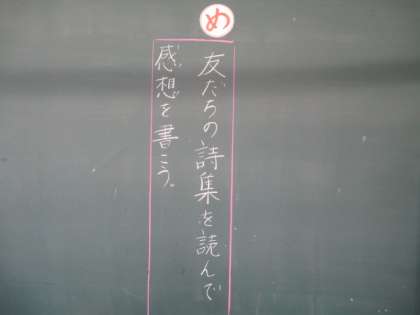 め
友だちの詩集を読んで
感想を書こう。